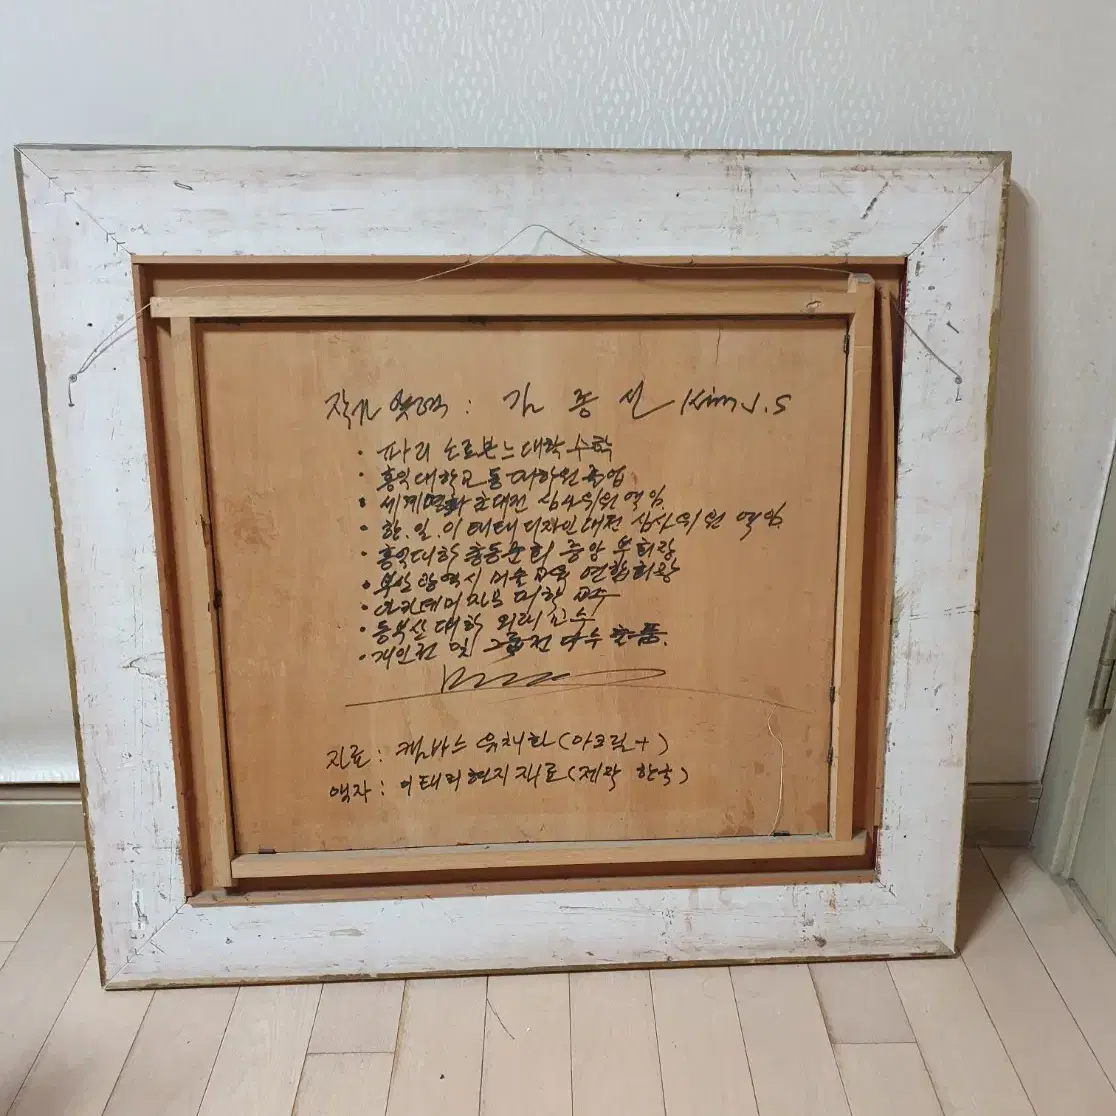 작가 약력 : 김 종 선 Kim J.S
· 파리 소르본느대학 수학
· 홍익대학교 동 대학원 졸업
· 세계명화 초대전 심사위원 역임.
· 한.일.이태리 디자인대전 심사위원 역임.
· 홍익대학 총동문회 중앙 부회장
· 부산광역시 미술 교육 연합회장
· 대학 교수
· 동부산대학 외래교수
· 개인전 및 그룹전 다수 출품.
자료 : 캔바스 유채화 (아크릴+)
액자 : 이태리현지재료 (제작 한국)